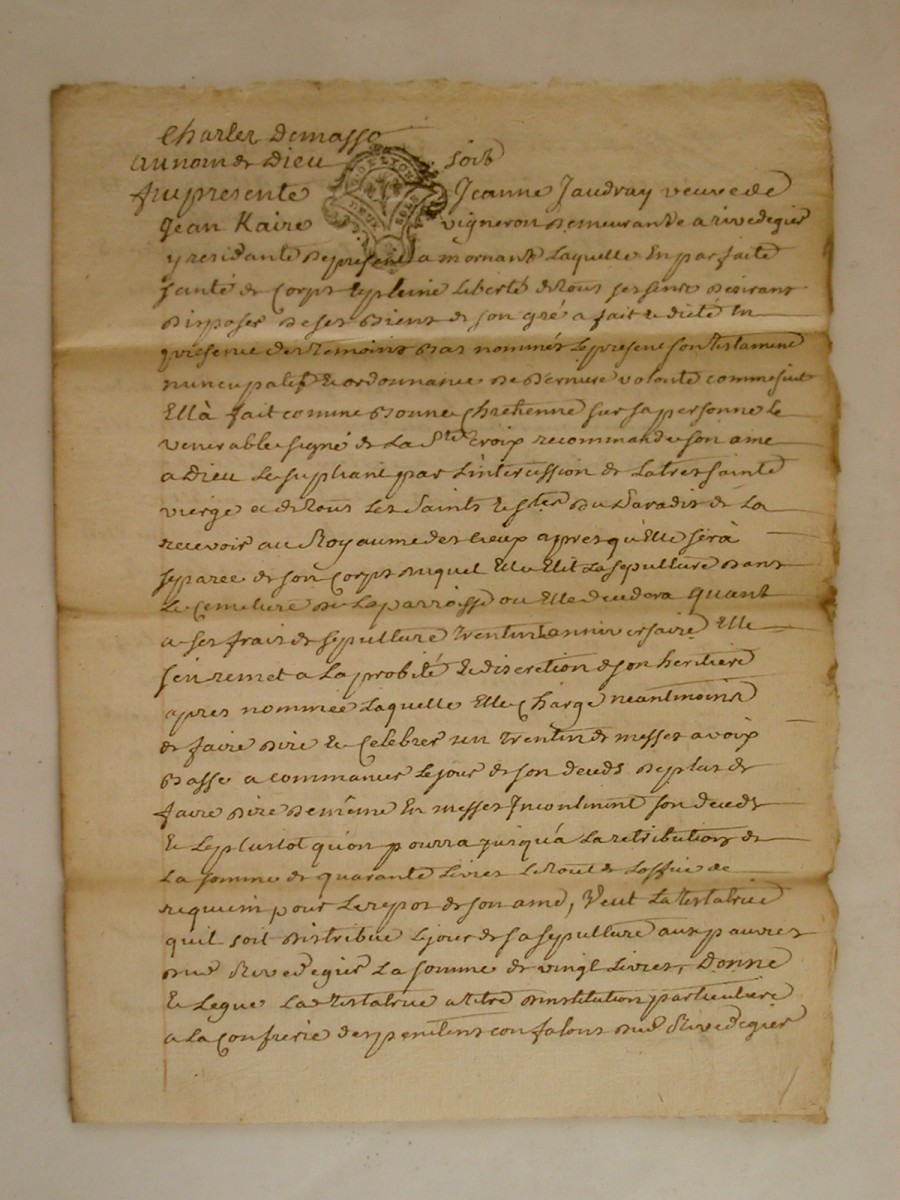 Charles Demasso
au nom de Dieu soit
fut presente Jeanne Jaudray veuve de
Jean Kaire vigneron demeurante a rivedegier
y residante de present a mornant Laquelle En parfaite
santé de Corps Et pleine Liberté de tous ses sens desirant
disposer de ses Biens de son gré a fait et dicté En
presence des temoins Bas nommés Le present son testament
nuncupatif Et ordonnance de derniere volonté comme suit
Ellà fait comme Bonne Chretienne sur sa personne Le
venerable signé de La Ste Croix recommandé son ame
a Dieu Le supliant par L'intercession de La tres sainte
vierge et de tous Les Saints Et Stes du Paradis de La
recevoir au Royaume des Cieux apres qu'Elle serà
separée de son Corps duquel Elle Elit La sepulture dans
Le Cemetiere de La parroisse ou Elle decedera quant
a ses frais de sepulture trentin Et anniversaire Elle
s'en remet a La probité Et discretion de son heritiere
apres nommée Laquelle Elle Charge neantmoins
de faire dire Et Celebrer un trentin de messes a voix
Basse a commancer Le jour de son deceds de plus de
faire dire de même En messes Incontinent son deceds
Et Le plustot qu'on pourra jusqu'a La retribution de
La somme de quarante Livres Le tout de L'office de
requiem pour Le repos de son ame, Veut La testatrice
quil soit distribué Le jour de sa sepulture aux pauvres
dud Rivedegier La somme de vingt Livres, Donne
Et Legue La testatrice a titre d'institution particuliere
a La Confrerie des penitens confalons dud Rivedegier